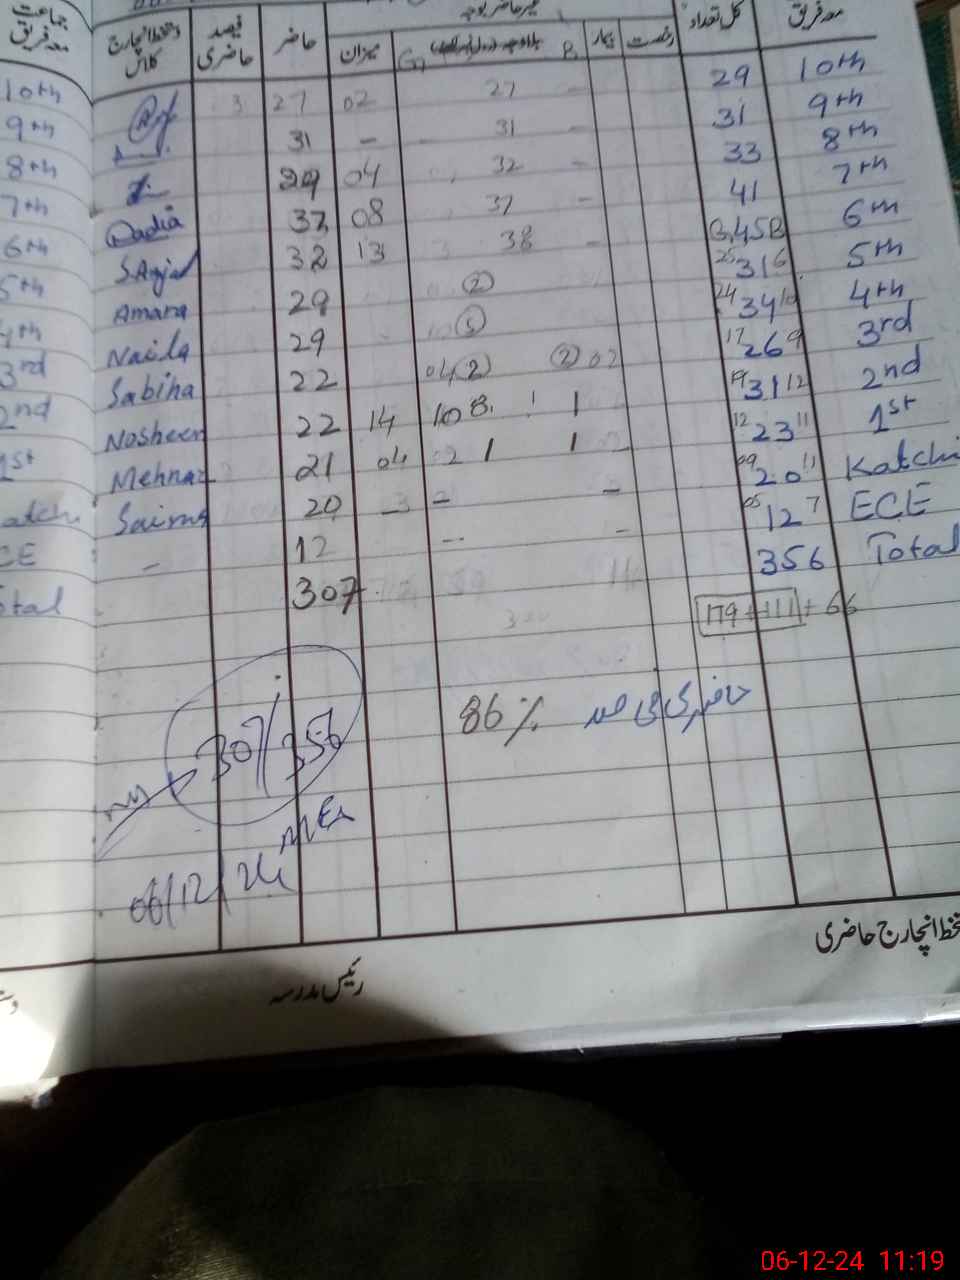 غیر حاضر بوجہ
معہ فریق کل تعداد رخصت بیمار B G میزان حاضر فیصد حاضری دستخط انچارج کلاس جماعت معہ فریق
10th 29 - 27 02 27 3 10th
9th 31 - 31 - 31 9th
8th 33 - 32 04 29 8th
7th 41 - 37 08 37 Dadia 7th
6th 45 - 38 13 32 S.Anjal 6th
5th 25 31 6 2 29 Amara 5th
4th 24 34 10 10 5 29 Naila 4th
3rd 17 26 9 02 2 04 2 22 Sabiha 3rd
2nd 19 31 12 1 10 8 14 22 Nosheen 2nd
1st 12 23 11 1 2 1 04 21 Mehnaz 1st
Katchi 09 20 11 - - 3 20 Saima atchi
ECE 05 12 7 - -- 12 - CE
Total 356 307 otal
179+111+66
86% حاضری فی صد
307/356
06/12/24
تخط انچارج حاضری
رئیس مدرسہ
06-12-24 11:19